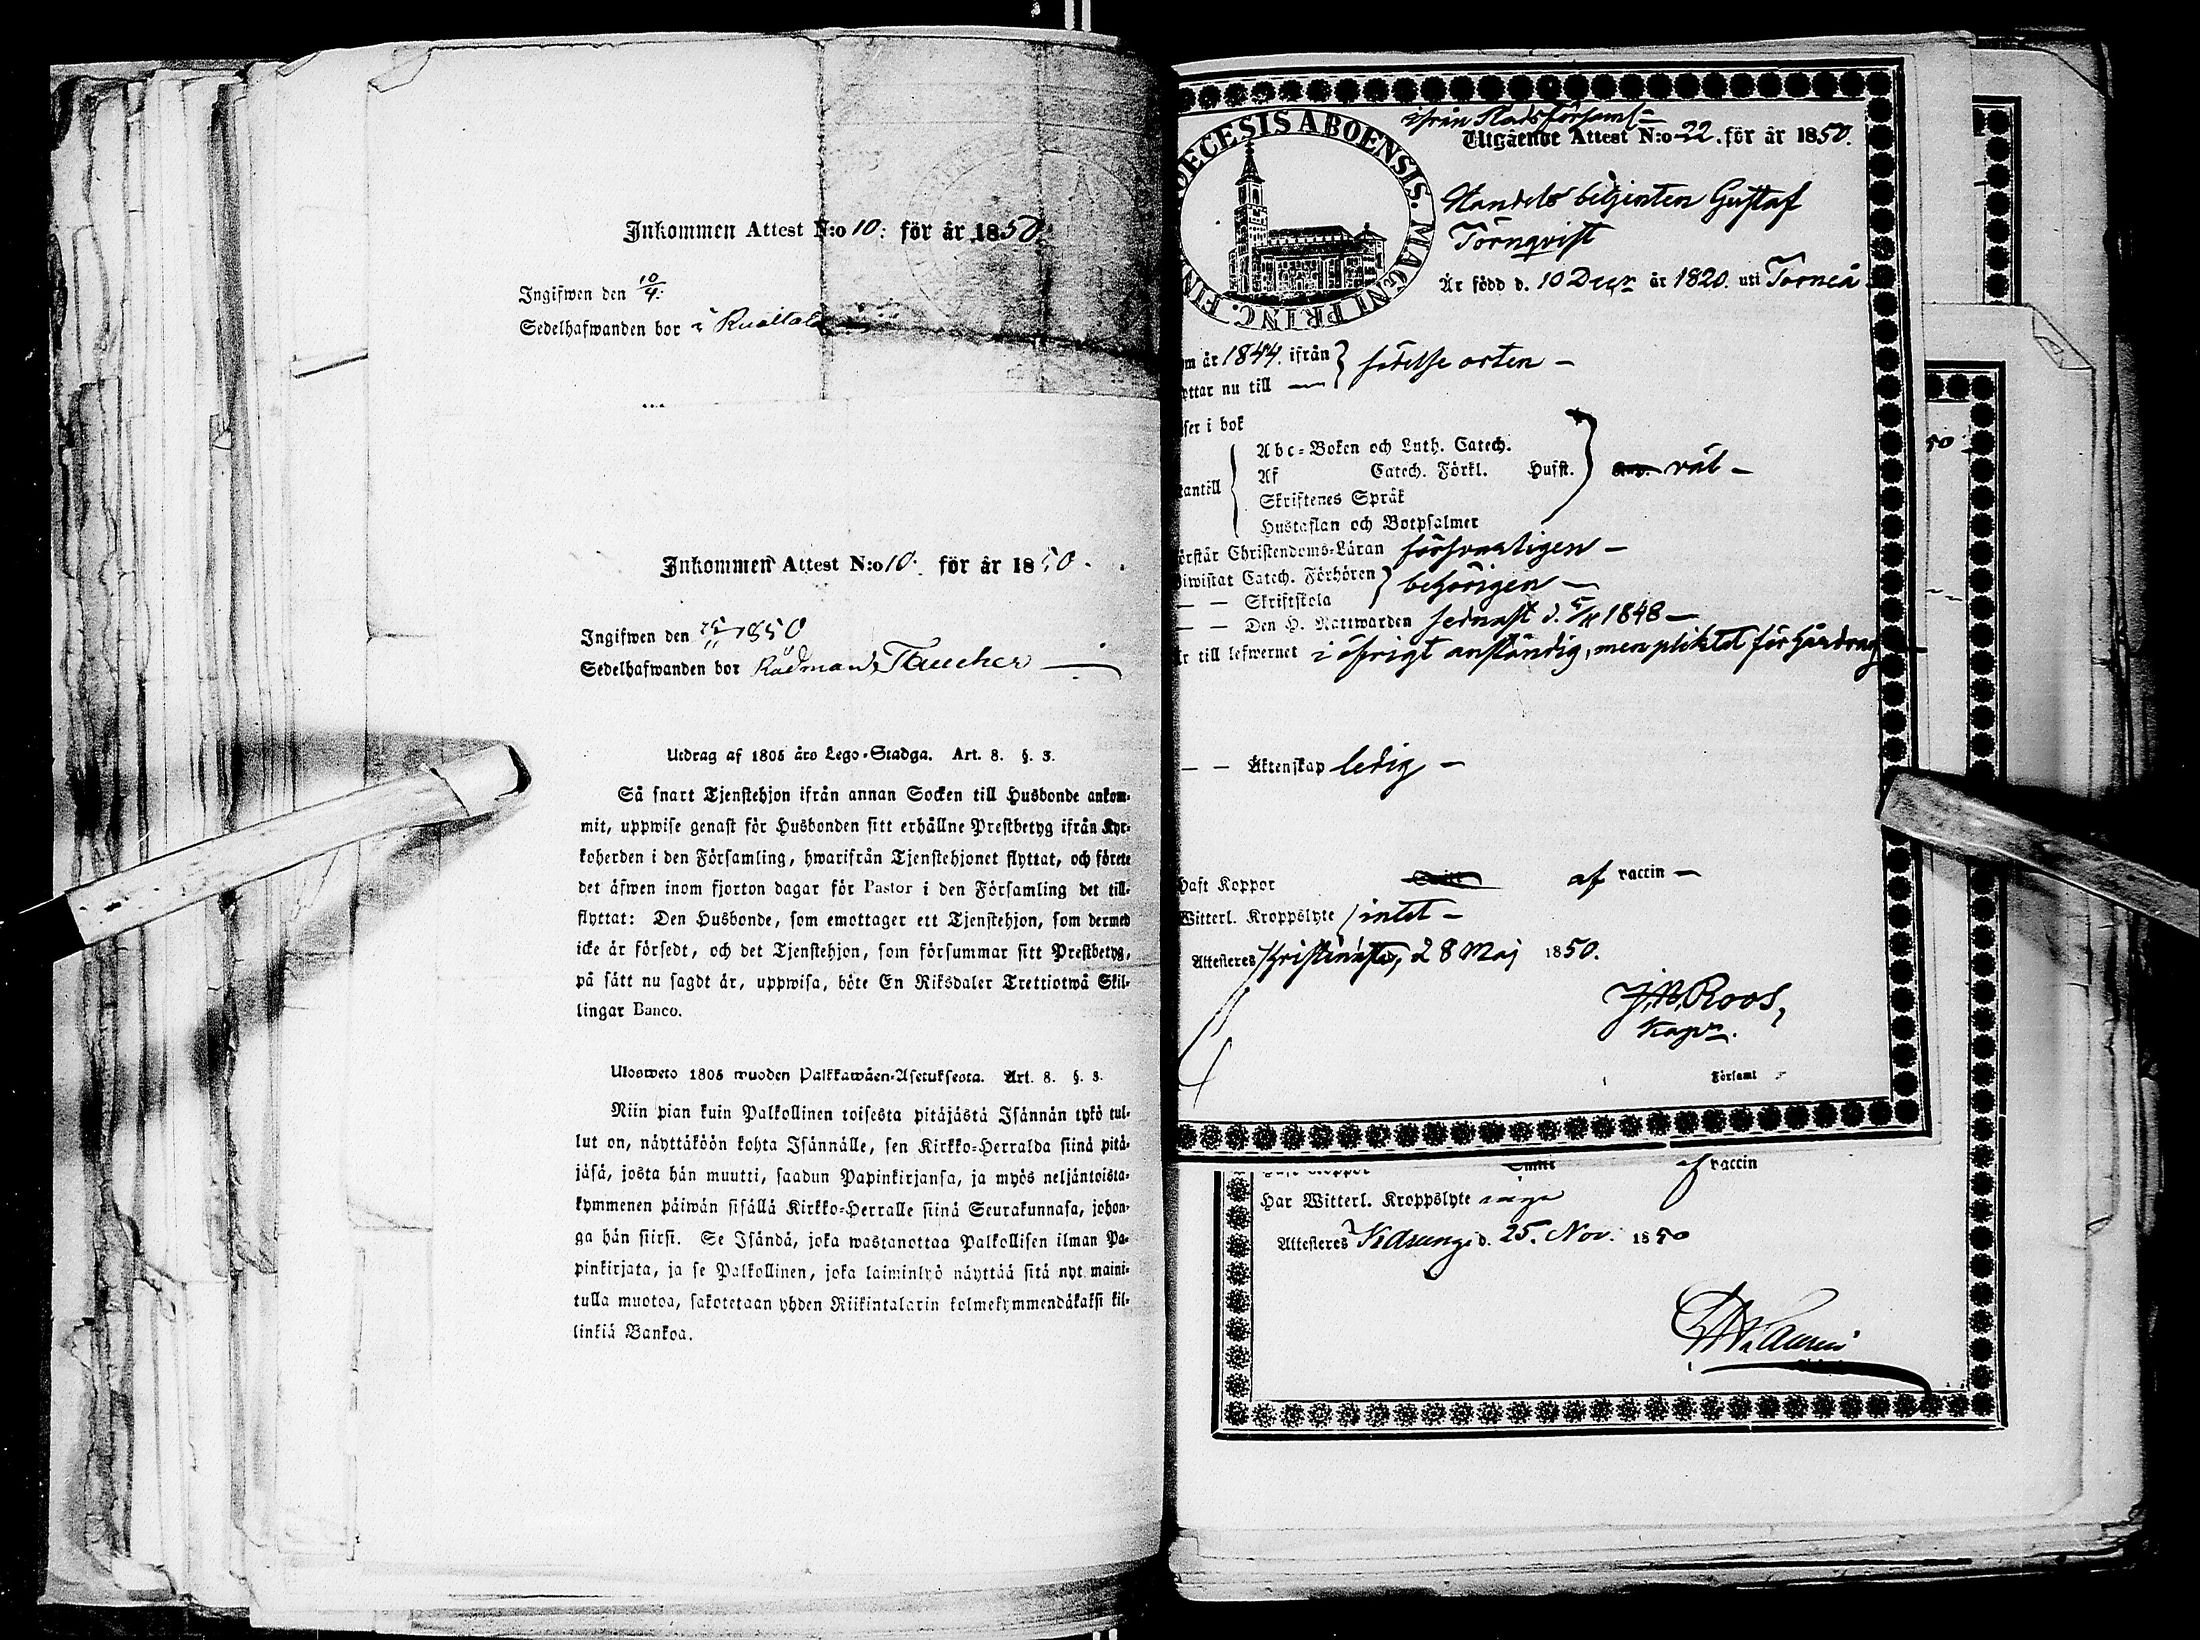 Inkommen Attest N:o 10: för år 1850.
Ingifwen den 10/4.
Sedelhafwanden bor i
Inkommen Attest N:o 10. för år 1850.
Ingifwen den 25/11 1850
Sedelhafwanden bor Rådman Flaucher
Utdrag af 1805 års Lego-Stadga. Art. 8. §. 3.
Så snart Tjenstehjon ifrån annan Socken till Husbonde ankom-
mit, uppwise genast för Husbonden sitt erhållne Prestbetyg ifrån Kyr-
koherden i den Församling, hwarifrån Tjenstehjonet flyttat, och förete
det äfwen inom fjorton dagar för Pastor i den Församling det till-
flyttat: Den Husbonde, som emottager ett Tjenstehjon, som dermed
icke är försedt, och det Tjenstehjon, som försummar sitt Prestbetyg,
på sätt nu sagdt är, uppwisa, böte En Riksdaler Trettiotwå Skil-
lingar Banco.
Ulosweto 1805 wuoden Palkkawäen-Asetuksesta. Art. 8. §. 3.
Niin pian kuin Palkollinen toisesta pitäjästä Isännän tykö tul-
lut on, näyttäköön kohta Isännälle, sen Kirkko-Herralda siinä pitä-
jäsä, josta hän muutti, saadun Papinkirjansa, ja myös neljäntoista-
kymmenen päiwän sisällä Kirkko-Herralle siinä Seurakunnasa, johon-
ga hän siirsi. Se Isändä, joka wastanottaa Palkollisen ilman Pa-
pinkirjata, ja se Palkollinen, joka laiminlyö näyttää sitä nyt maini-
tulla muotoa, sakotetaan yhden Riikintalarin kolmekymmendäkaksi kil-
linkiä Bankoa.
ECESIS ABOENSIS. MAGNI PRINC. FIN
ifrån Stadsförsaml.
Utgående Attest N:o 22. för år 1850.
Handels betjenten Gustaf
Törnqvist
Är född d. 10 Decr år 1820. uti Torneå
m år 1844. ifrån } födelse orten –
ttar nu till —
ser i bok
Abc-Boken och Luth. Catech.
Af Catech. Förkl. Husst. } väl –
tantill { Skriftenes Språk
Hustaflan och Botpsalmer
örstår Christendoms-Läran försvarligen –
iwistat Catech. Förhören } behörigen –
— — Skriftskola
— — Den H. Nattwarden sednast d. 1848 –
r till lefwernet i öfrigt anständig, men pliktat för hårdrag
— — Äktenskap ledig –
Haft Koppor af vaccin –
Witterl. Kroppslyte intet –
Attesteres Kristinestad, 28 Maj 1850.
Roos,
Kapn.
Församl
af vaccin
Har Witterl. Kroppslyte inga
Attesteres Karungi d. 25. Nov. 1850